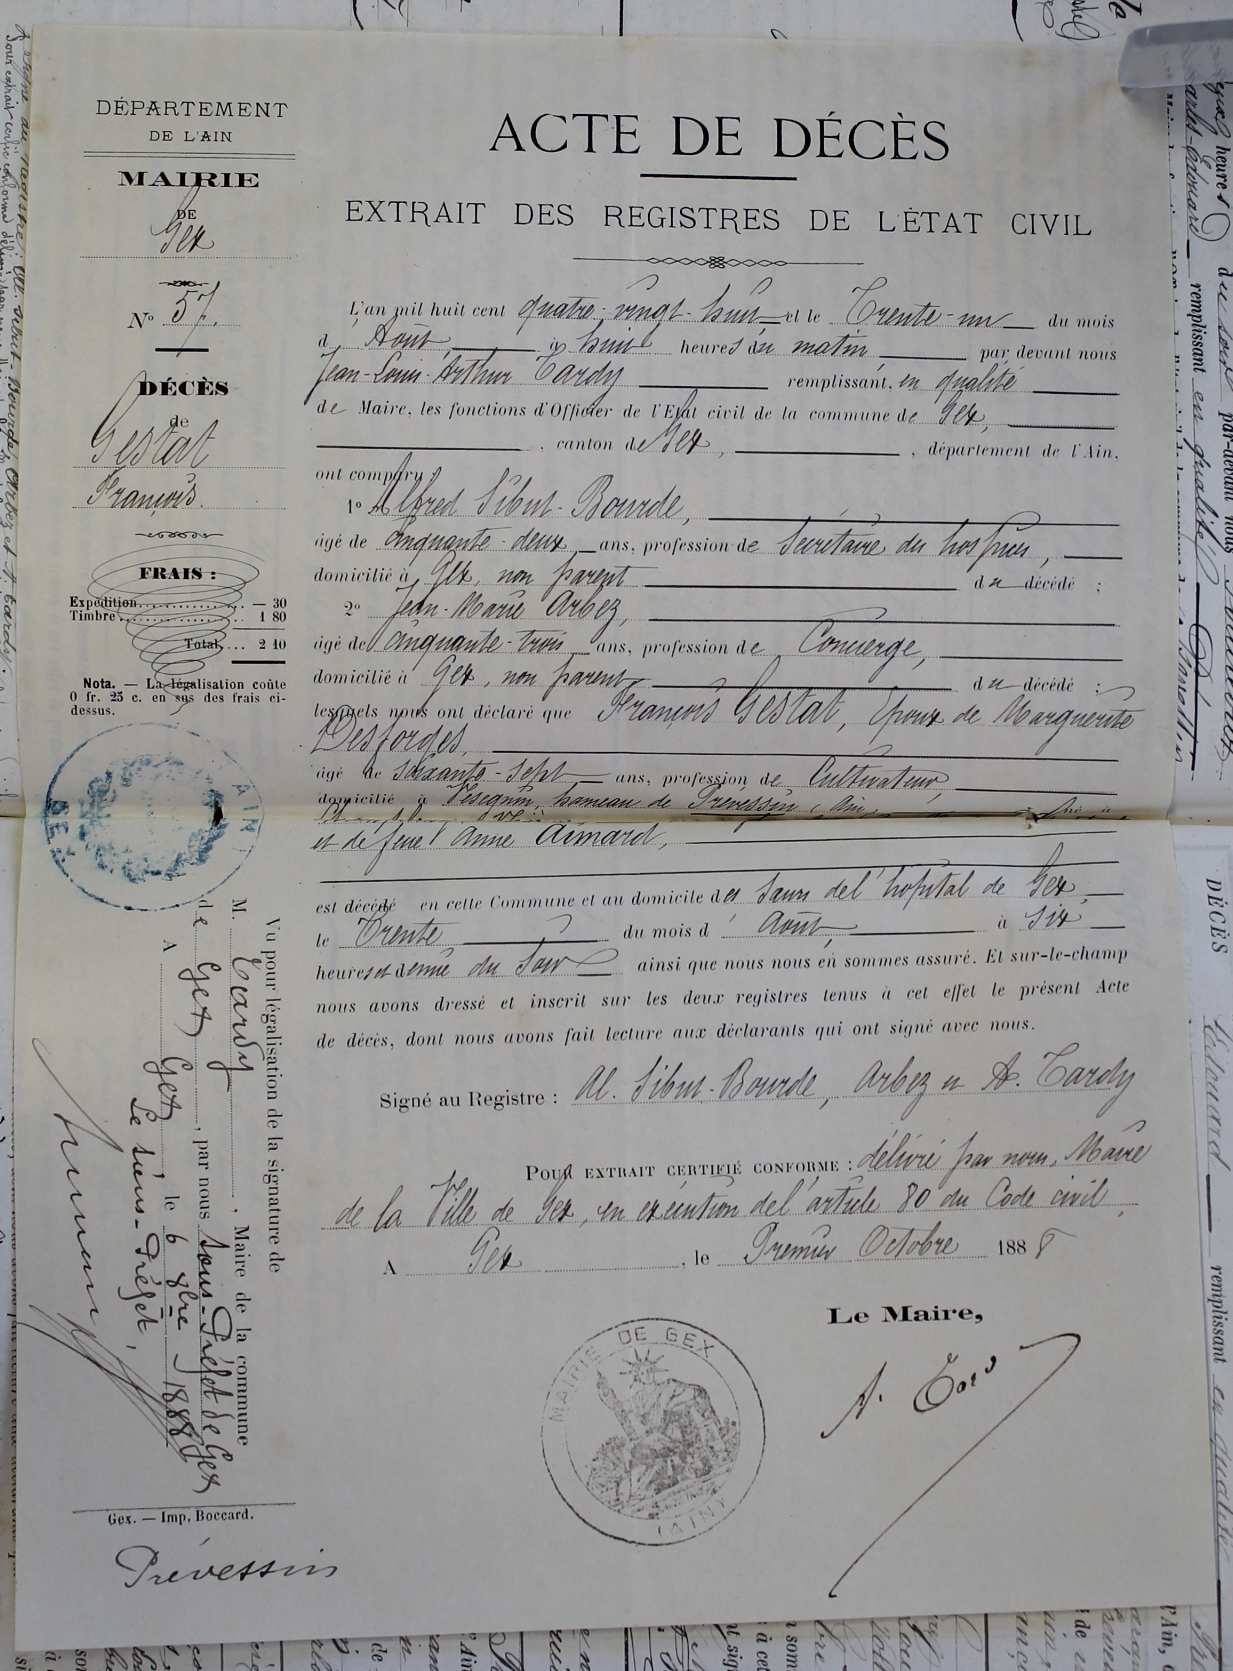 DÉPARTEMENT
DE L'AIN
MAIRIE
DE
Gex
N° 57.
DÉCÈS
de
Gestat
François.
FRAIS :
Expédition — 30
Timbre 1 80
Total 2 10
Nota. — La légalisation coûte
0 fr. 25 c. en sus des frais ci-
dessus.
ACTE DE DÉCÈS
EXTRAIT DES REGISTRES DE L'ÉTAT CIVIL
L'an mil huit cent quatre-vingt-huit et le Trente-un du mois
d' Août, à huit heures du matin par devant nous
Jean-Louis-Arthur Tardy remplissant, en qualité
de Maire, les fonctions d'Officier de l'Etat civil de la commune de Gex,
, canton de Gex, , département de l'Ain,
ont comparu
1° Alfred Sibut-Bourde,
âgé de cinquante-deux ans, profession de Secrétaire du hospice,
domicilié à Gex, non parent du décédé ;
2° Jean-Marie Arbez,
âgé de cinquante-trois ans, profession de Concierge,
domicilié à Gex, non parent du décédé ;
lesquels nous ont déclaré que François Gestat, époux de Marguerite
Desforges,
âgé de soixante-sept ans, profession de Cultivateur,
domicilié à Vésegnin, hameau de Prévessin (Ain
et de feue Anne Aimard,
est décédé en cette Commune et au domicile des Sœurs de l'hôpital de Gex,
le Trente du mois d' Août, à six
heures et demie du soir ainsi que nous nous en sommes assuré. Et sur-le-champ
nous avons dressé et inscrit sur les deux registres tenus à cet effet le présent Acte
de décès, dont nous avons fait lecture aux déclarants qui ont signé avec nous.
Signé au Registre : Al. Sibut-Bourde, Arbez et A. Tardy
POUR EXTRAIT CERTIFIÉ CONFORME : délivré par nous, Maire
de la Ville de Gex, en exécution de l'article 80 du Code civil,
A Gex, le Premier Octobre 1888
Le Maire,
A. Tardy
MAIRIE DE GEX
(AIN)
GEX
AIN
Vu pour légalisation de la signature de
M. Tardy, Maire de la commune
de Gex, par nous Sous-Préfet de Gex
A Gex le 6 8bre 1888
Le Sous-Préfet,
Gex. — Imp. Boccard.
Prévessin
DÉCÈS
Edouard
remplissant en qualité
heures du soir par-devant nous
remplissant en qualité